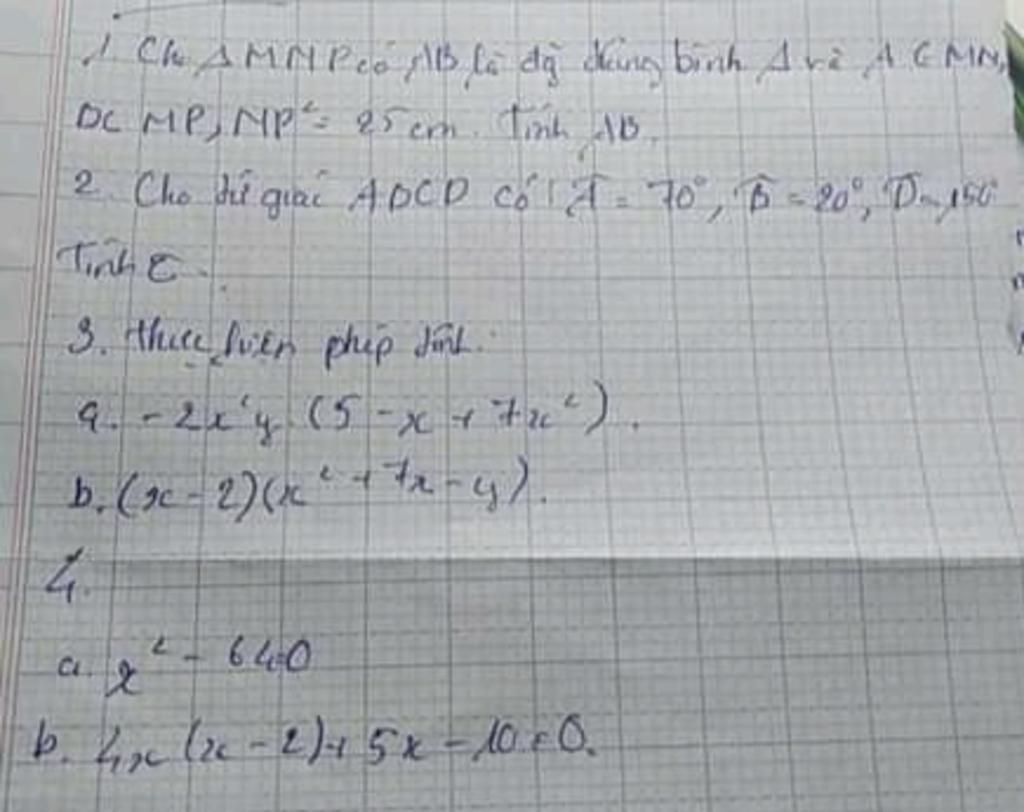 1. Cho ΔMNP có AB là đg trung bình Δ và A ∈ MN,
B ∈ MP, NP = 25 cm. Tính AB.
2. Cho tứ giác ABCD có: Â = 70°, B̂ = 20°, D̂ = 150°
Tính C.
3. thực hiện phép tính.
a. -2x²y (5 - x + 7x²).
b. (x - 2)(x² + 7x - y).
4.
a. x² - 64=0
b. 4x (x - 2) + 5x - 10 = 0.